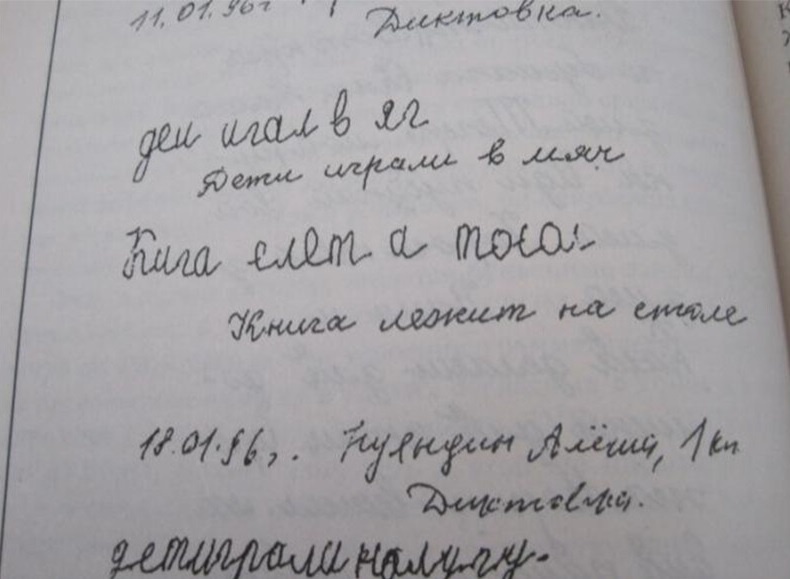 11.01.96г
Диктовка.
деи игал в яг
Дети играли в мяч
Кига елет а тоса
Книга лежит на столе
18.01.96г. Алёшин, 1 кл
Диктовка.
детигралиналугу.